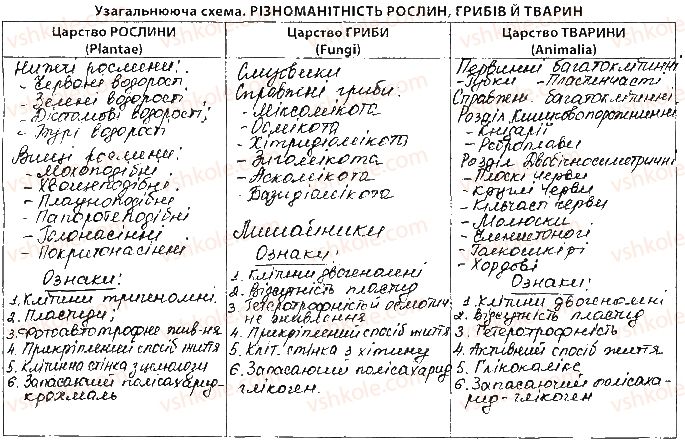 Узагальнююча схема. РІЗНОМАНІТНІСТЬ РОСЛИН, ГРИБІВ Й ТВАРИН
Царство РОСЛИНИ
(Plantae)
Нижчі рослини:
- Червоні водорості
- Зелені водорості
- Діатомові водорості,
- Бурі водорості
Вищі рослини:
- Мохоподібні
- Хвощеподібні
- Плауноподібні
- Папоротеподібні
- Голонасінні
- Покритонасінні
Ознаки:
1. Клітини тригеномні.
2. Пластиди
3. Фотоавтотрофне жив-ня
4. Прикріплений спосіб життя
5. Клітинна стінка з целюлози
6. Запасаючий полісахарид-
крохмаль
Царство ГРИБИ
(Fungi)
Слизовики
Справжні гриби.
- Міксомікота
- Оомікота
- Хітридіомікота
- Зигомікота
- Аскомікота
- Базидіомікота
Лишайники
Ознаки:
1. Клітини двогеномні
2. Відсутність пластид
3. Гетеротрофність й осмотич-
не живлення
4. Прикріплений спосіб життя
5. Кліт. стінка з хітину
6. Запасаючий полісахарид
глікоген.
Царство ТВАРИНИ
(Animalia)
Первинні багатоклітинні
- Губки - Пластинчасті
Справжні багатоклітинні.
Розділ Кишковопорожнинні
- Кнідарії
- Реброплави
Розділ Двобічносиметричні
- Плоскі черви
- Круглі черви
- Кільчасті черви
- Молюски
- Членистоногі
- Голкошкірі
- Хордові
Ознаки:
1. Клітини двогеномні
2. Відсутність пластид
3. Гетеротрофність
4. Активний спосіб життя
5. Глікокалікс
6. Запасаючий поліса ха-
рид - глікоген
vshkole.com